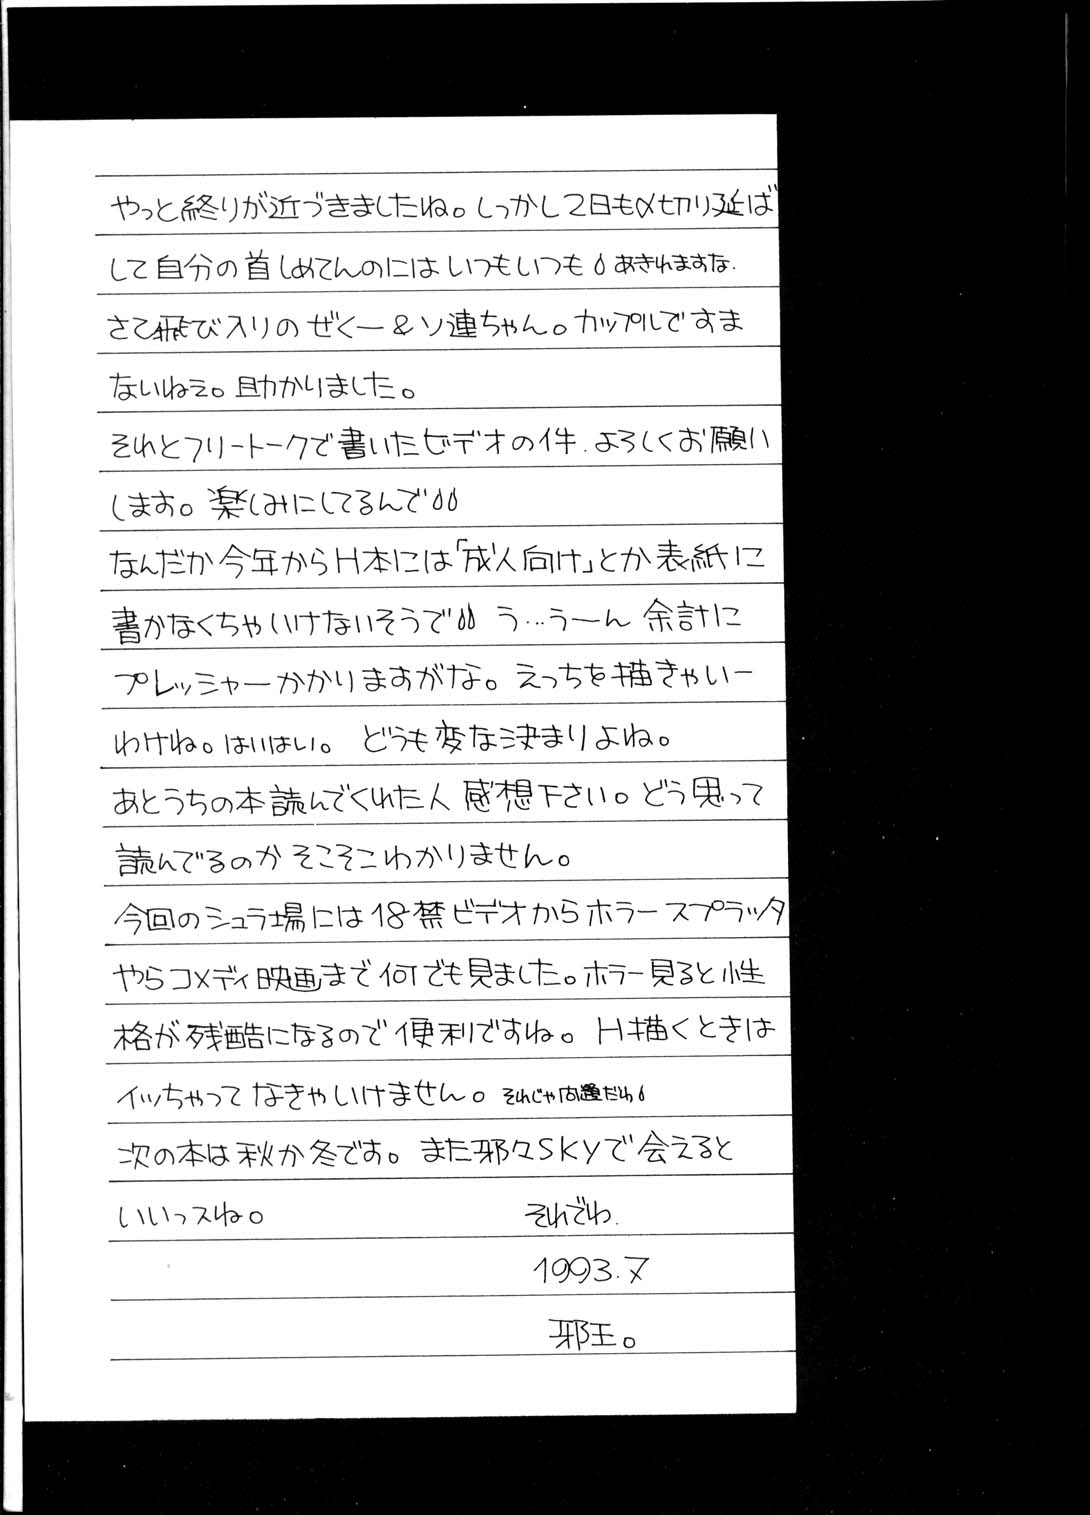 やっと終りが近づきましたね。しっかし2日も〆切り延ば
して自分の首しめてんのにはいつもいつも あきれますな.
さて飛び入りのぜくー&ソ連ちゃん。カップルですま
ないねェ。助かりました。
それとフリートークで書いたビデオの件.よろしくお願い
します。楽しみにしてるんで
なんだか今年からH本には「成人向け」とか表紙に
書かなくちゃいけないそうで う…うーん 余計に
プレッシャーかかりますがな。えっちを描きゃいー
わけね。はいはい。 どうも変な決まりよね。
あとうちの本読んでくれた人 感想下さい。どう思って
読んでるのかそこそこわかりません。
今回のシュラ場には18禁ビデオからホラースプラッタ
やらコメディ映画まで何でも見ました。ホラー見ると性
格が残酷になるので便利ですね。H描くときは
イッちゃってなきゃいけません。それじゃ問題だわ
次の本は秋か冬です。また邪々SKYで会えると
いいっスね。 それでわ.
1993.7
邪王。